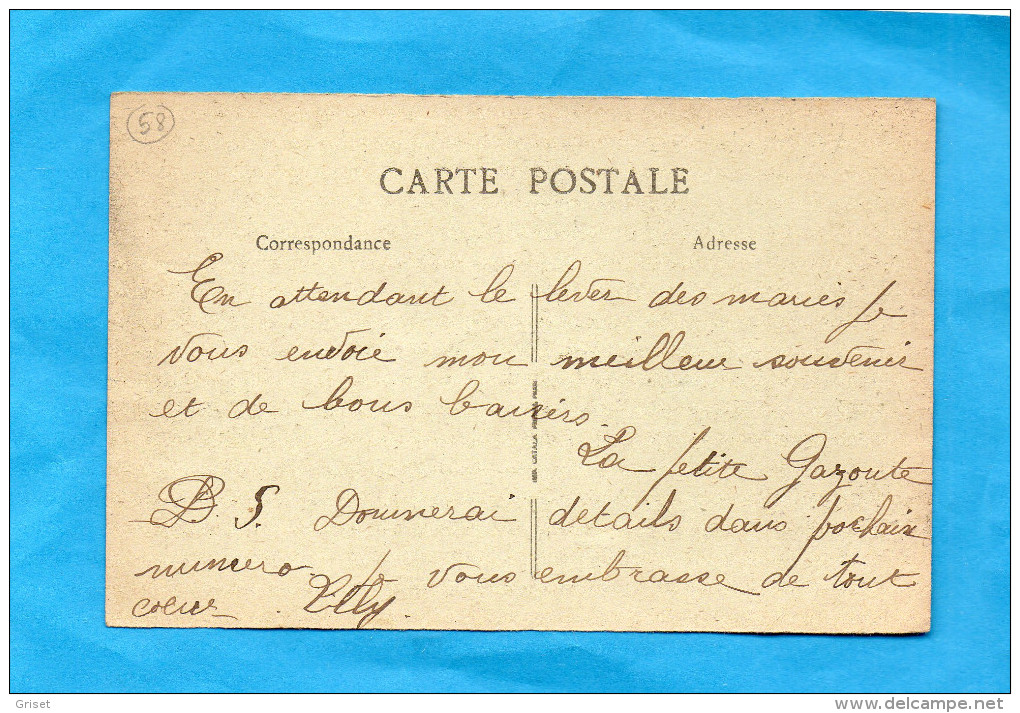 58
CARTE POSTALE
Correspondance
Adresse
En attendant le lever des mariés je
vous envoie mon meilleur souvenir
et de bons baisers.
La petite Gazoute
P. S. Donnerai details dans prochain
numero je vous embrasse de tout
coeur
IMP. CATALA FRÈRES PARIS
Griset
www.delcampe.net